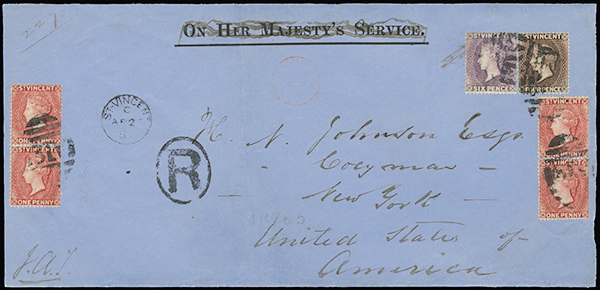 221
ON HER MAJESTY'S SERVICE.
ST VINCENT
SIX PENCE
ST VINCENT
FOUR PENCE
ST VINCENT
ONE PENNY
ST VINCENT
ONE PENNY
ST VINCENT
C
AP 2
R
ST VINCENT
ONE PENNY
ST VINCENT
ONE PENNY
H. N. Johnson Esqr.
Coeymans
New York
United States of
America